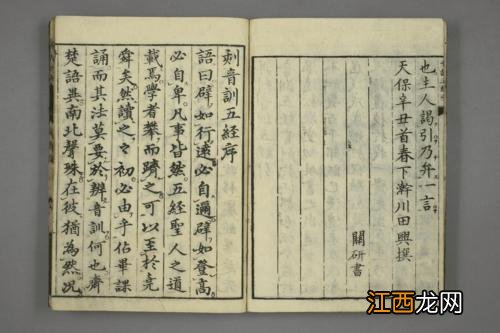 也主人謁引乃弁一言
天保辛丑首春下澣川田興撰
關研書
刻音訓五經序
語曰辟如行遠必自邇辟如登高
必自卑凡事皆然五經聖人之道
載焉學者攀而躋之可以至於堯
舜矣然讀之之初必由乎佔畢課
誦而其法莫要於辨音訓何也齊
楚語異南北聲殊在彼猶為然况
江西龙网